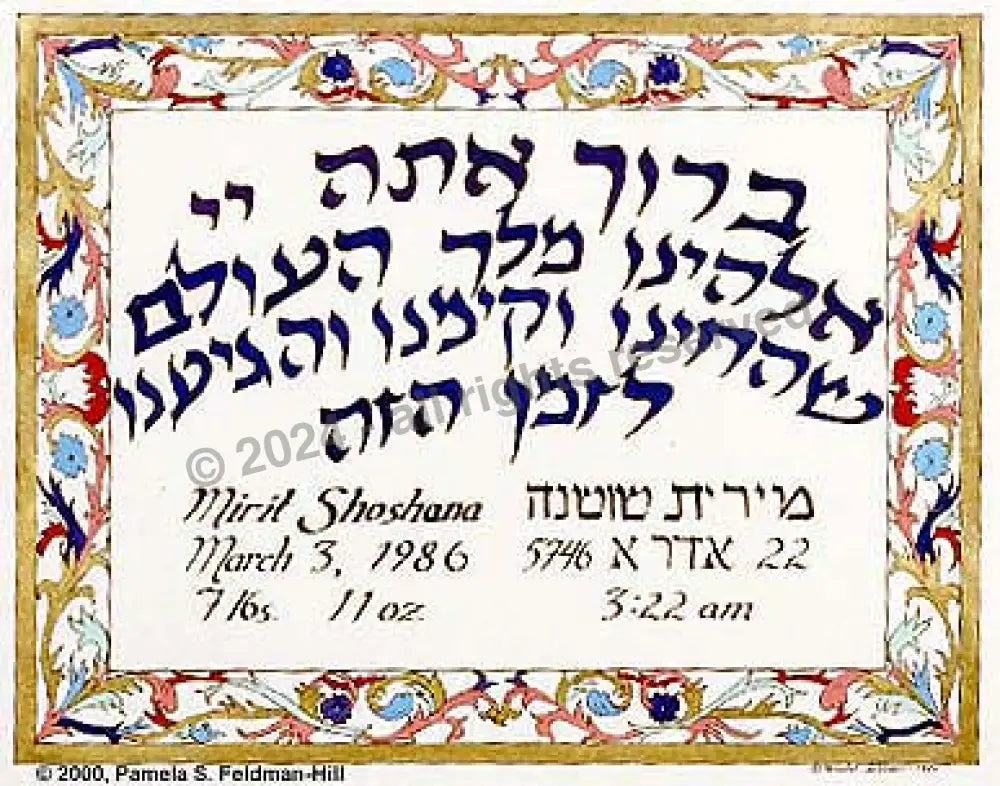 ברוך אתה יי
אלהינו מלך העולם
שהחינו וקימנו והגיענו
לזמן הזה
© 2024 all rights reserved
Mirit Shoshana מירית שושנה
March 3, 1986 22 אדר א 5746
7 lbs. 11 oz. 3:22 am
© 2000, Pamela S. Feldman-Hill